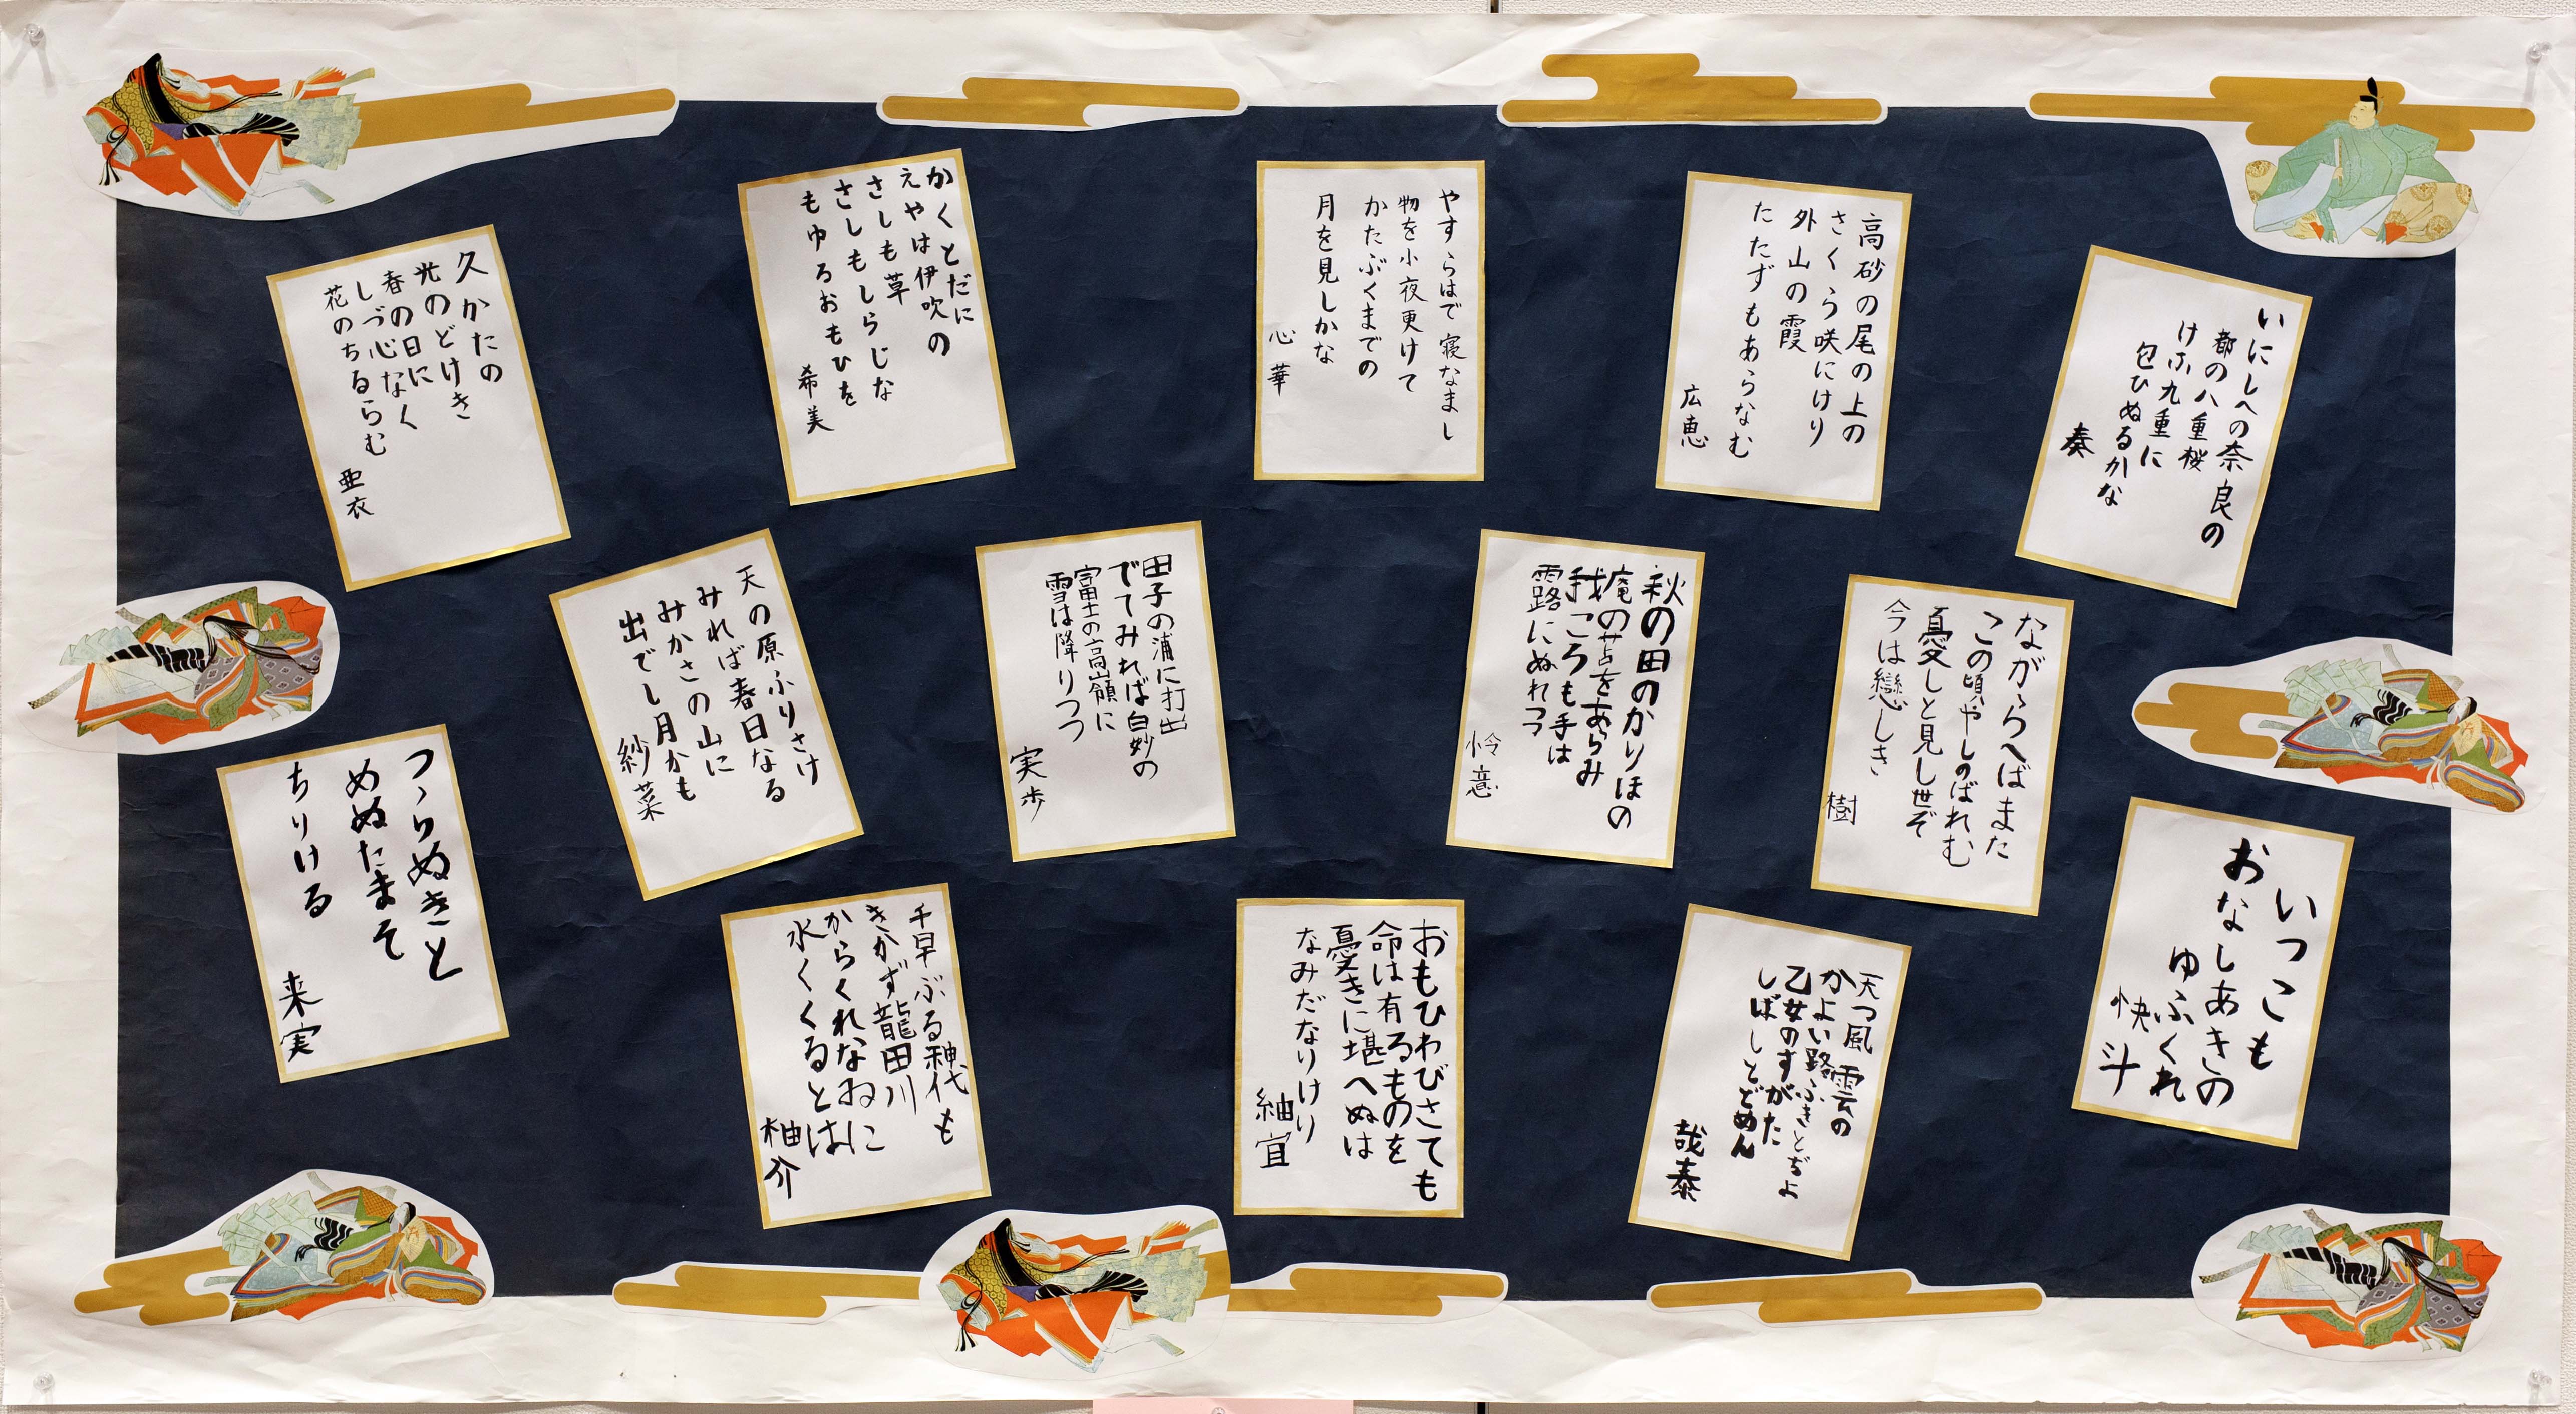 いにしへの奈良の
都の八重桜
けふ九重に
包ひぬるかな
奏
高砂の尾の上の
さくら咲にけり
外山の霞
たたずもあらなむ
広恵
やすらはで寝なまし
物を小夜更けて
かたぶくまでの
月を見しかな
心華
かくとだに
えやは伊吹の
さしも草
さしもしらじな
もゆるおもひを
希美
久かたの
光のどけき
春の日に
しづ心なく
花のちるらむ
亜衣
ながらへばまた
この頃やしのばれむ
憂しと見し世ぞ
今は戀しき
樹
秋の田のかりほの
庵の苫をあらみ
我ころも手は
露にぬれつつ
怜意
田子の浦に打出
でてみれば白妙の
富士の高嶺に
雪は降りつつ
実歩
天の原ふりさけ
みれば春日なる
みかさの山に
出でし月かも
紗菜
いつこも
おなしあきの
ゆふくれ
快斗
天つ風雲の
かよい路ふきとぢよ
乙女のすがた
しばしとどめん
哉泰
おもひわびさても
命は有るものを
憂きに堪へぬは
なみだなりけり
紬宜
千早ぶる神代も
きかず龍田川
からくれなゐに
水くくるとは
柚介
つらぬきと
めぬたまそ
ちりける
来実